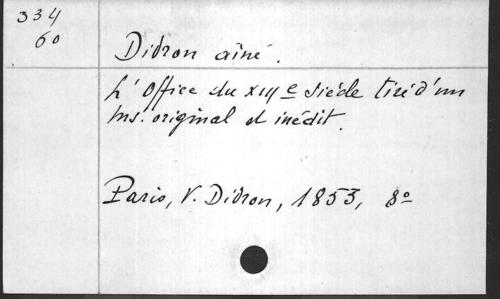 334
60
Didron aîné.
L'Office du XIIIe siècle tiré d'un
Ms. original et inédit.
Paris, V. Didron, 1853, 8o